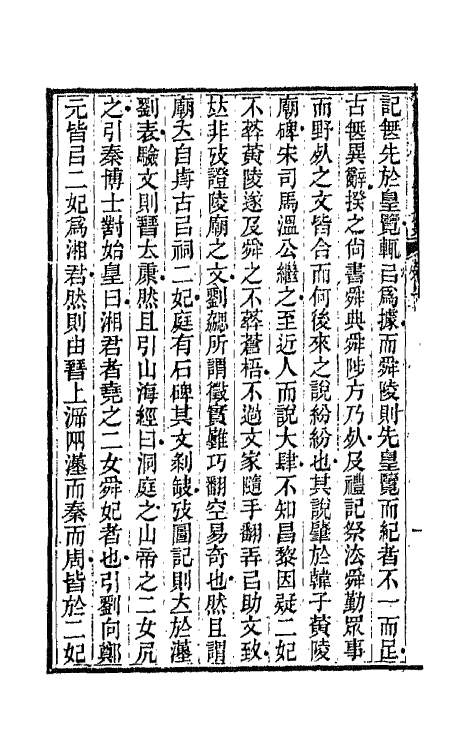 記無先於皇覽輒㠯爲據而舜陵則先皇覽而紀者不一而足
古無異辭揆之尙書舜典舜陟方乃𣦸及禮記祭法舜勤眾事
而野𣦸之文皆合而何後來之說紛紛也其說肇於韓子黃陵
廟碑宋司馬溫公繼之至近人而說大肆不知昌黎因疑二妃
不葬黃陵遂及舜之不葬蒼梧不過文家隨手翻弄㠯助文致
𠀤非攷證陵廟之文劉勰所謂徵實難巧翻空易奇也然且謂
廟𠀤自歬古㠯祠二妃庭有石碑其文剝缺攷圖記則𠀤於漢
劉表驗文則晉太康然且引山海經曰洞庭之山帝之二女凥
之引秦博士對始皇曰湘君者堯之二女舜妃者也引劉向鄭
元皆㠯二妃爲湘君然則由晉上泝兩漢而秦而周皆於二妃